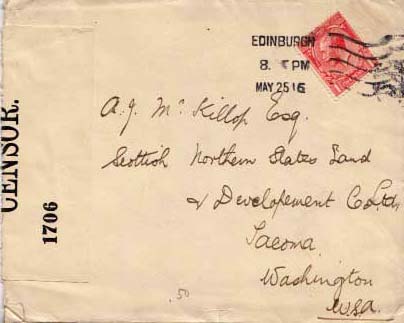 EDINBURGH
8. PM
MAY 25 16
A. J. McKillop Esq.
Scottish Northern States Land
& Development Co Ltd
Tacoma
Washington
U.S.A.
CENSOR.
1706
.50